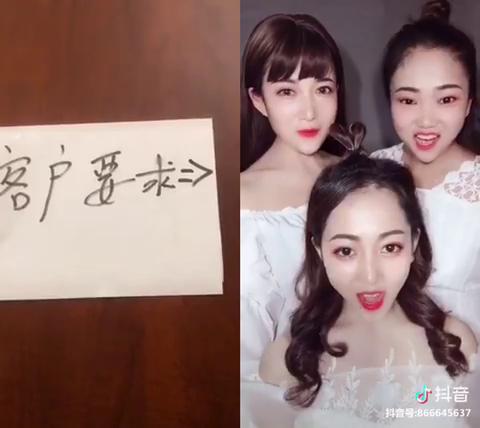 客户要求=>
抖音
抖音号:866645637